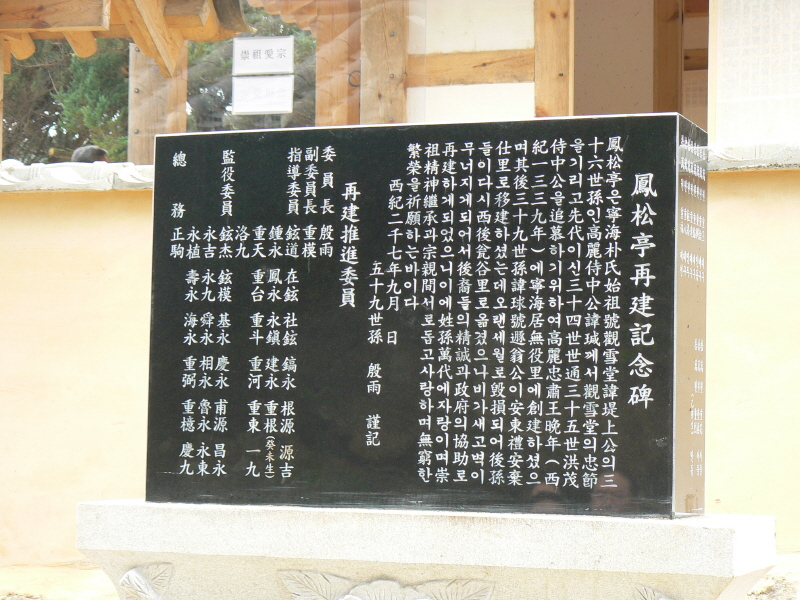 崇祖愛宗
鳳松亭再建記念碑
鳳松亭은寧海朴氏始祖號觀雪堂諱堤上公의三
十六世孫인高麗侍中公諱瑊께서觀雪堂의忠節
을기리고先代이신三十四世世通三十五世洪茂
侍中公을追慕하기위하여高麗忠肅王晩年(西
紀一三三九年)에寧海居無役里에創建하셨으
며其後三十九世孫諱球號遯翁公이安東禮安棄
仕里로移建하셨는데오랜세월로毁損되어後孫
들이다시西後瓮谷里로옮겼으나비가새고벽이
무너지게되어서後裔들의精誠과政府의協助로
再建하게되었으니이에姓孫萬代에자랑이며崇
祖精神繼承과宗親間서로돕고사랑하며無窮한
繁榮을祈願하는바이다
西紀二千七年九月 日
五十九世孫 殷雨 謹記
再建推進委員
委員長 殷雨
副委員長 重模
指導委員 鉉道 在鉉 社鉉 鎬永 根源 源吉
鍾永 鳳永 永鎭 建永 重根(癸未生)
重天 重台 重斗 重河 重東 一九
洛九
監役委員 鉉杰 鉉模 基永 慶永 甫源 昌永
永吉 永九 舜永 相永 魯永 永東
永植 壽永 海永 重弼 重檍 慶九
總務 正駒